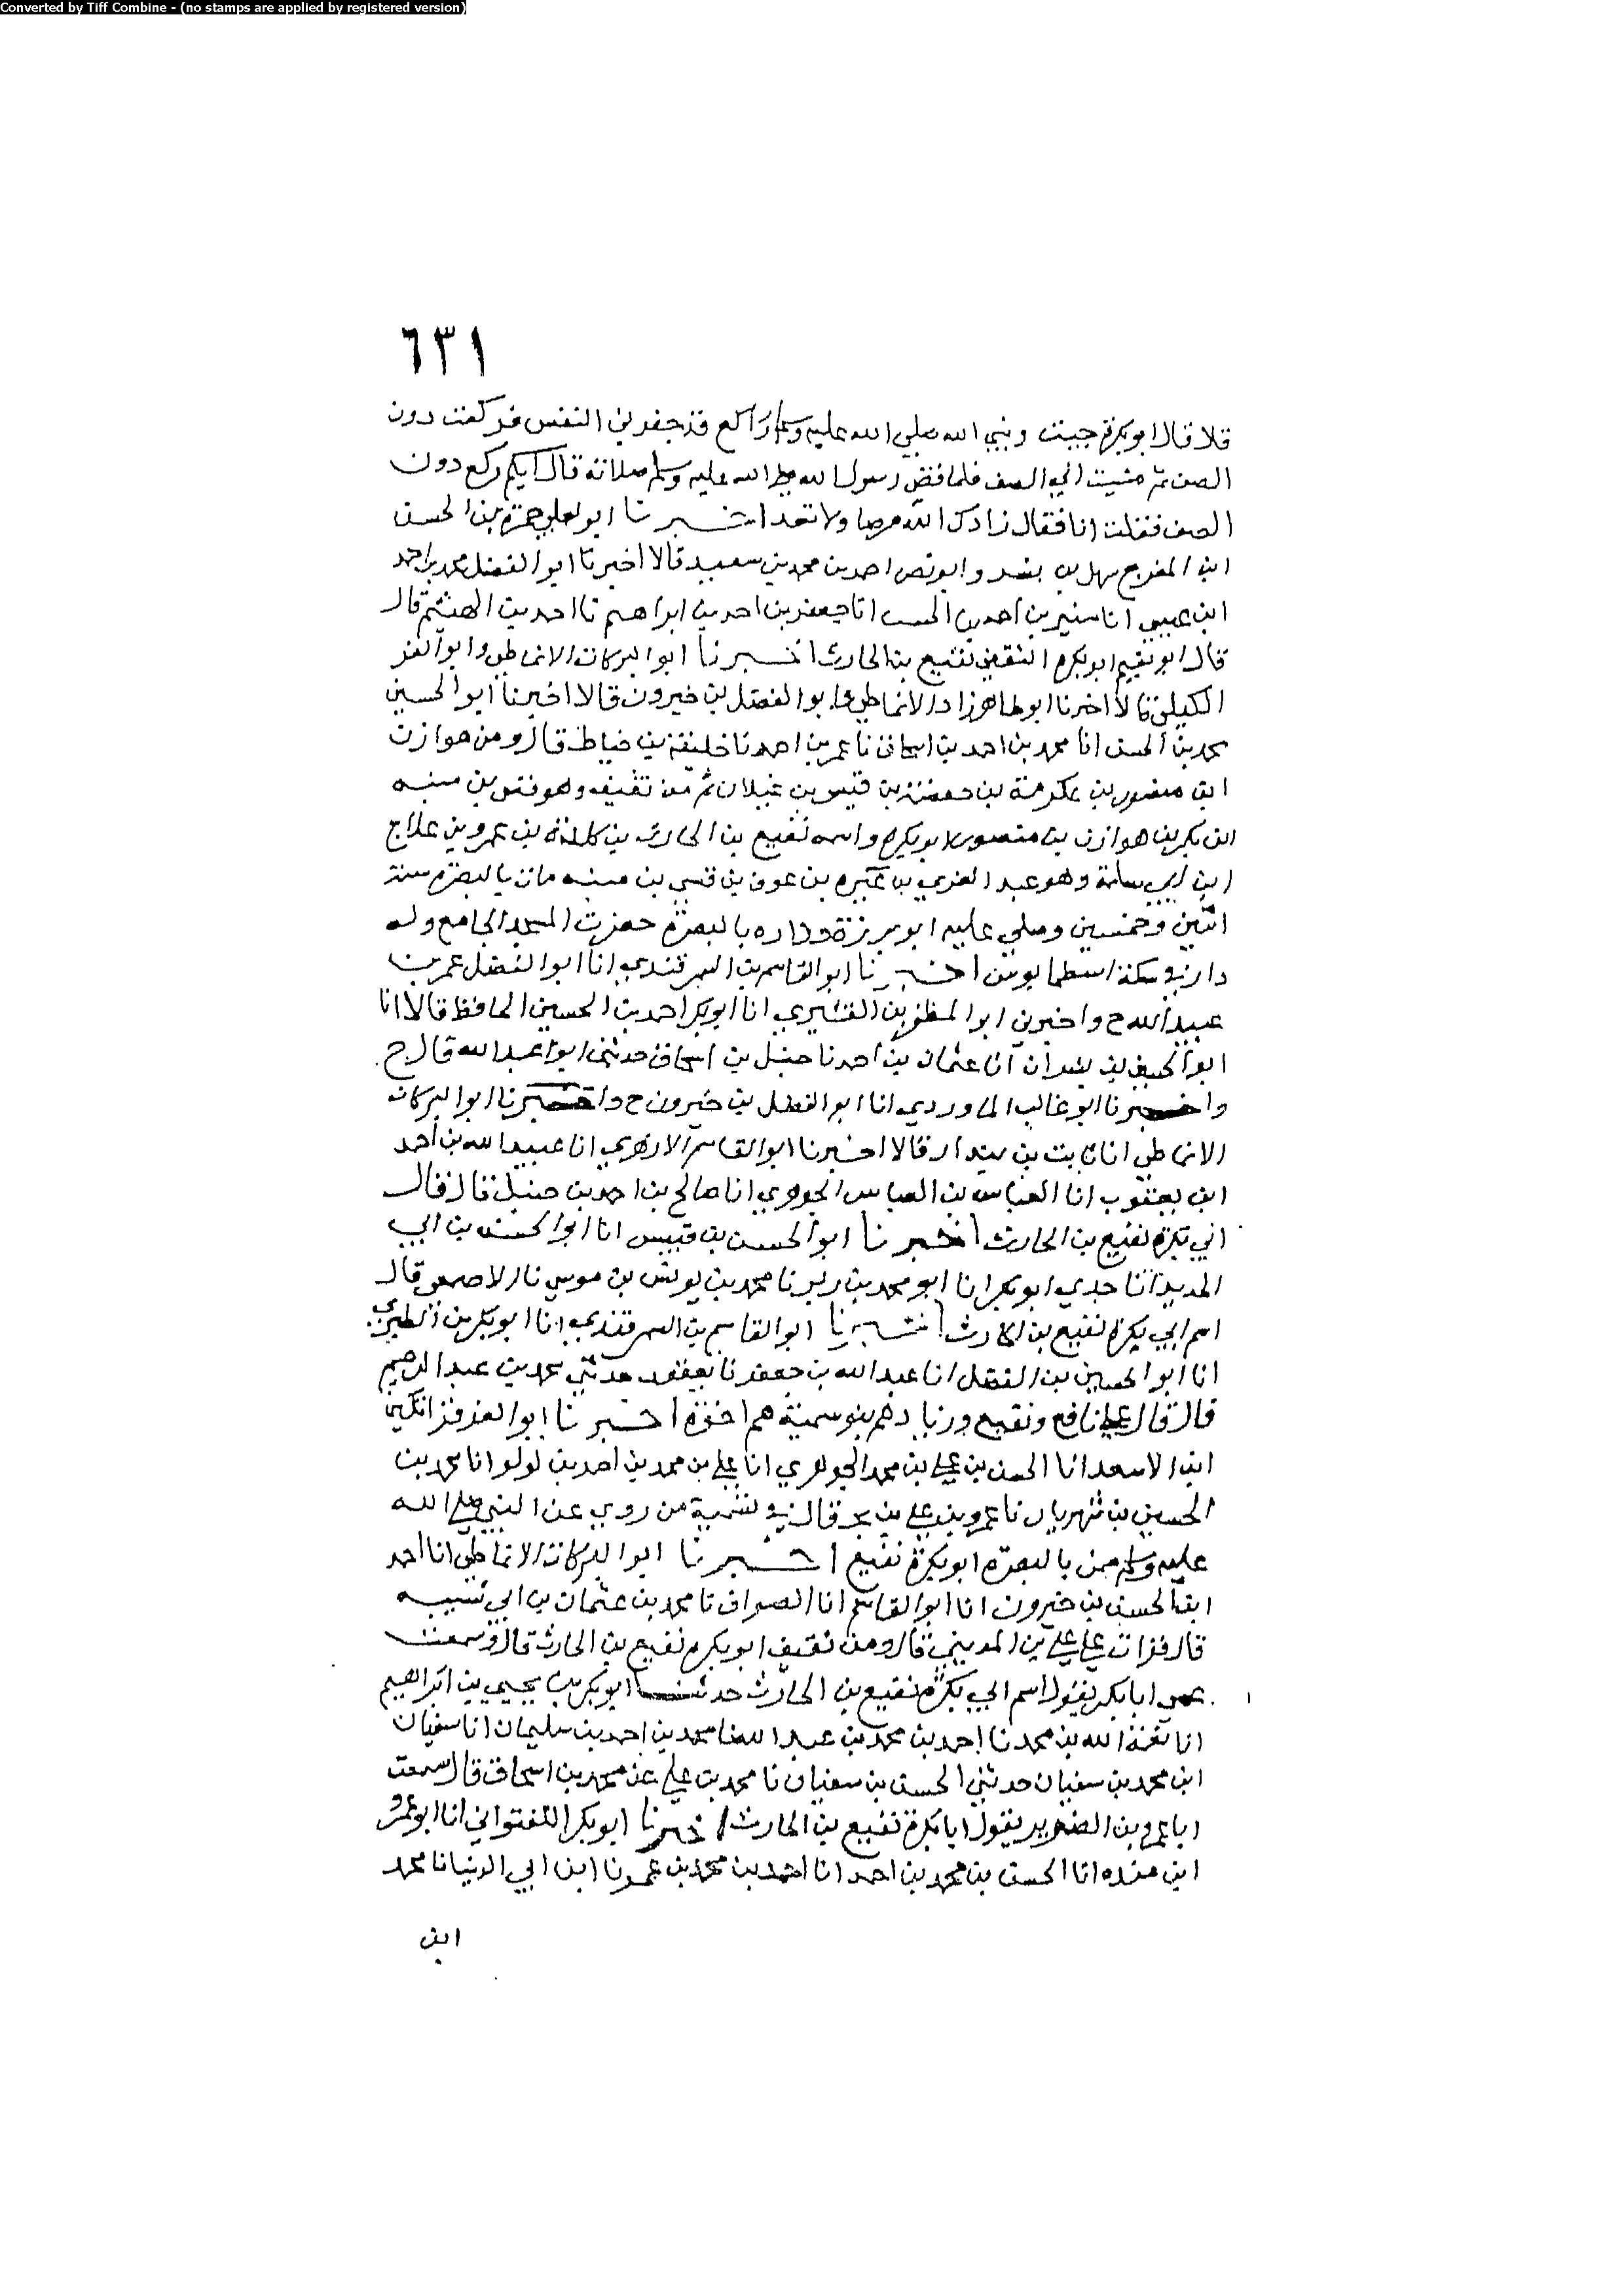 Converted by Tiff Combine - (no stamps are applied by registered version)
٦٣١
قلا قال ابو بكرة جيت ونبي الله صلي الله عليه وسلم راكع قد حفزني النفس فركعت دون
الصف ثم مشيت الي الصف فلما قضي رسول الله صلى الله عليه وسلم صلاته قال ايكم ركع دون
الصف فقلت انا فقال زادك الله حرصا ولا تعد اخبرنا ابو يعلي حمزة بن الحسن
ابن المفرج سهل بن بشر وابو نصر احمد بن محمد بن سعيد قالا اخبرنا ابو الفضل محمد بن احمد
ابن عيسي انا منير بن احمد بن الحسن انا جعفر بن احمد بن ابراهيم نا احمد بن الهيثم قال
قال ابو نعيم ابو بكرة الثقفي نفيع بن الحارث اخبرنا ابو البركات الانماطي وابو العز
الكيلي قالا اخبرنا ابو طاهر زاد الانماطي وابو الفضل بن خيرون قالا اخبرنا ابو الحسين
محمد بن الحسن انا محمد بن احمد بن اسحاق نا عمر بن احمد نا خليفة بن خياط قال ومن هوازن
ابن منصور بن عكرمة بن خصفة بن قيس بن عيلان ثم من ثقيف وهو قسي بن منبه
ابن بكر بن هوازن بن منصور ابو بكرة واسمه نفيع بن الحارث بن كلدة بن عمرو بن علاج
ابن ابي سلمة وهو عبد العزي بن غيرة بن عوف بن قسي بن منبه مات بالبصرة سنة
اثنين وخمسين وصلي عليه ابو برزة وداره بالبصرة حضرت المسجد الجامع وله
دار في سكة اسطفانوس اخبرنا ابو القاسم بن السمرقندي انا ابو الفضل عمر بن
عبيد الله ح واخبرني ابو المظفر بن القشيري انا ابو بكر احمد بن الحسين الحافظ قالا انا
ابو الحسين بن بشران انا عثمان بن احمد نا حنبل بن اسحاق حدثني ابو عبد الله قال ح
واخبرنا ابو غالب الماوردي انا ابو الفضل بن خيرون ح واخبرنا ابو البركات
الانماطي انا ثابت بن بندار قالا اخبرنا ابو القاسم الازهري انا عبيد الله بن احمد
ابن يعقوب انا العباس بن العباس الجوهري انا صالح بن احمد بن حنبل قال قال
ابي بكرة نفيع بن الحارث اخبرنا ابو الحسن بن قبيس انا ابو الحسن بن ابي
الحديد انا جدي ابو بكر انا ابو محمد بن زبر نا محمد بن يونس بن موسي نا الاصمعي قال
اسم ابي بكرة نفيع بن الحارث اخبرنا ابو القاسم بن السمرقندي انا ابو بكر بن الطبري
انا ابو الحسين بن الفضل انا عبد الله بن جعفر نا يعقوب حدثني محمد بن عبد الرحيم
قال قال علي نافع ونفيع وزياد هم بنو سمية هم اخوة اخبرنا ابو العز قراتكين
ابن الاسعد انا الحسن بن علي بن محمد الجوهري انا علي بن محمد بن احمد بن لولو انا محمد بن
الحسين بن شهريار نا عمرو بن علي بن بحر قال في تسمية من روي عن النبي صلى الله
عليه وسلم ممن بالبصرة ابو بكرة نفيع اخبرنا ابو البركات الانماطي انا احمد
ابن الحسن بن خيرون انا ابو القاسم انا الصواف نا محمد بن عثمان بن ابي شيبه
قال قرات علي علي بن المديني قال ومن ثقيف ابو بكرة نفيع بن الحارث قال وسمعت
عمي ابا بكر يقول اسم ابي بكرة نفيع بن الحارث حدثنا ابو بكر بن يحيي بن ابراهيم
انا نعمة الله بن محمد نا احمد بن محمد بن عبد الله نا محمد بن احمد بن سليمان انا سفيان
ابن محمد بن سفيان حدثني الحسن بن سفيان نا محمد بن علي عن محمد بن اسحاق قال سمعت
ابا عمرو بن الضرير يقول ابا بكرة نفيع بن الحارث اخبرنا ابو بكر اللفتواني انا ابو عمرو
ابن منده انا الحسن بن محمد بن احمد انا احمد بن محمد بن عمر نا ابن ابي الدنيا نا محمد
ابن